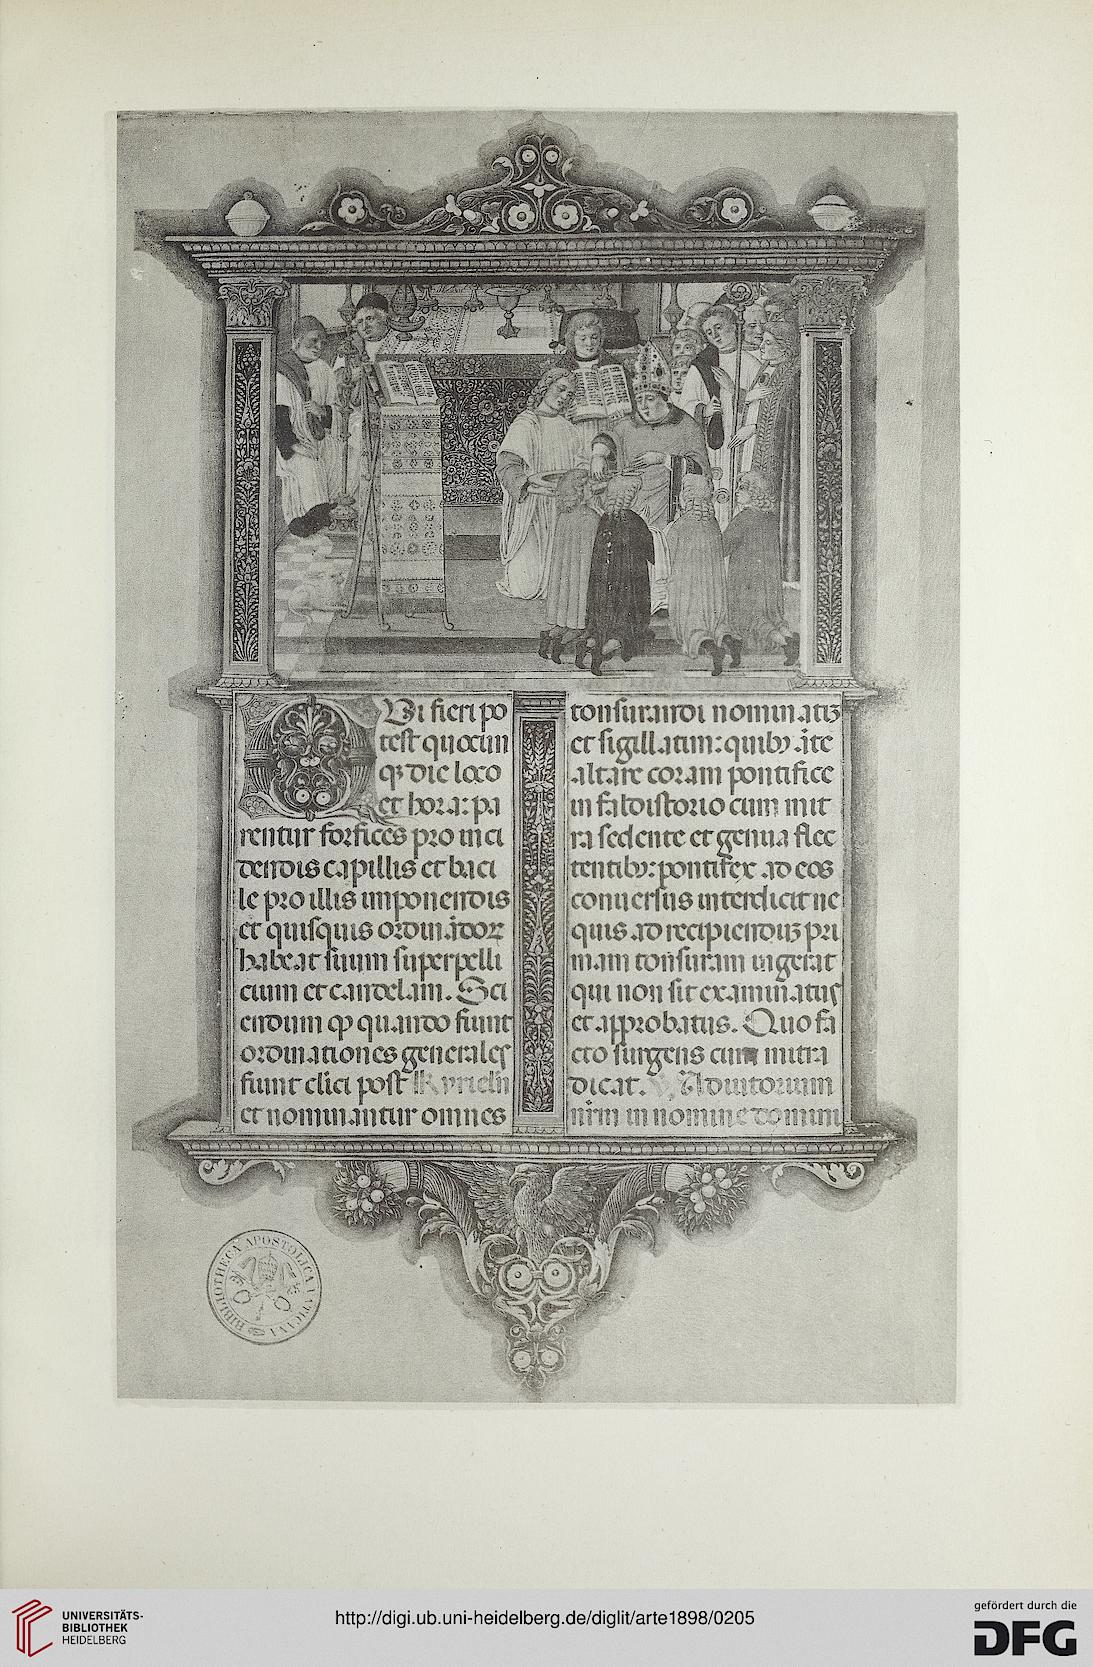 QVi fieri po
test quocun
qʒ die loco
et hora: pa
rentur forfices pro inci
dendis capillis et baci
le pro illis imponendis
et quisquis ordinādoꝝ
habeat suum superpelli
cium et candelam. Sci
endum ꝙ quando fiunt
ordinationes generales
fiunt clici post Kyriel'n
et nominantur omnes
tonsurandi nominatiʒ
et sigillatim: quibʒ āte
altare coram pontifice
in faldistorio cum mit
ra sedente et genua flec
tentibʒ: pontifex ad eos
conuersus interdicit ne
quis ad recipienduʒ pri
mam tonsuram ingerat
qui non sit examinatus
et approbatus. Quo fa
cto surgens cum mitra
dicat. Adiutorium
nrm in nomine domini
BIBLIOTHECA APOSTOLICA VATICANA
UNIVERSITÄTS-
BIBLIOTHEK
HEIDELBERG
http://digi.ub.uni-heidelberg.de/diglit/arte1898/0205
gefördert durch die
DFG